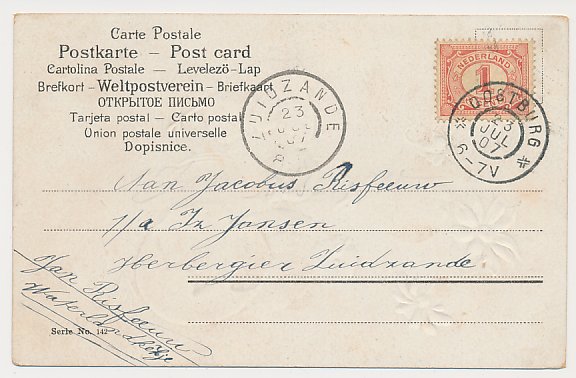 Carte Postale
Postkarte — Post card
Cartolina Postale — Levelező-Lap
Brefkort - Weltpostverein - Briefkaart
ОТКРЫТОЕ ПИСЬМО
Tarjeta postal — Carto postal
Union postale universelle
Dopisnice.
ZUIDZANDE
23
NEDERLAND
1
OOSTBURG
23
JUL
07
6-7V
Aan Jacobus Risseeuw
p/a Iz Jansen
Herbergier Zuidzande
Van Risseeuw
Waterlandkerkje
Serie No. 142